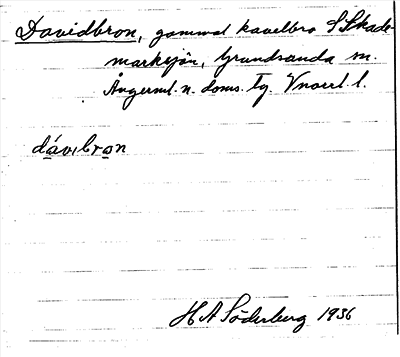 Davidbron, gammal kavelbro S Skade-
marksjön, Grundsunda sn.
Ångerml. n. doms. tg. Vnorrl. l.
dávibron
H A Söderberg 1936